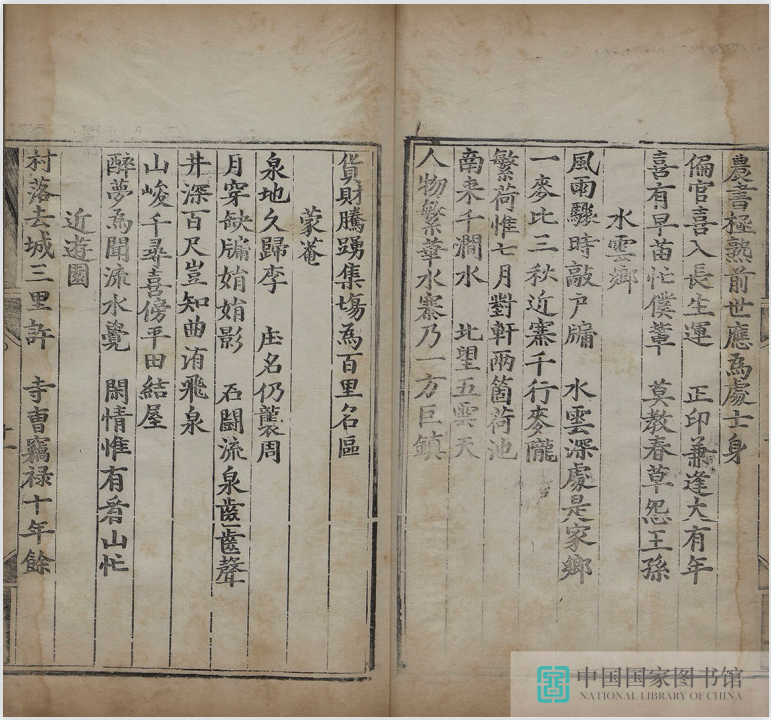 農書極熟前世應爲處士身
偏官喜入長生運 正印兼逢大有年
喜有早苗忙僕輩 莫教春草怨王孫
水雲鄉
風雨驟時敲戶牖 水雲深處是家鄉
一麥比三秋近寨千行麥隴
繁荷惟七月對軒兩箇荷池
南來千澗水 北望五雲天
人物繁華水寨乃一方巨鎮
貨財騰踴集場為百里名區
蒙菴
泉地久歸李 庄名仍襲周
月穿缺牖娟娟影 石鬭流泉齒齒聲
井深百尺豈知曲洧飛泉
山峻千尋喜傍平田結屋
醉夢為聞流水覺 閑情惟有看山忙
近遊園
村落去城三里許 寺曹竊祿十年餘
中国国家图书馆
NATIONAL LIBRARY OF CHINA